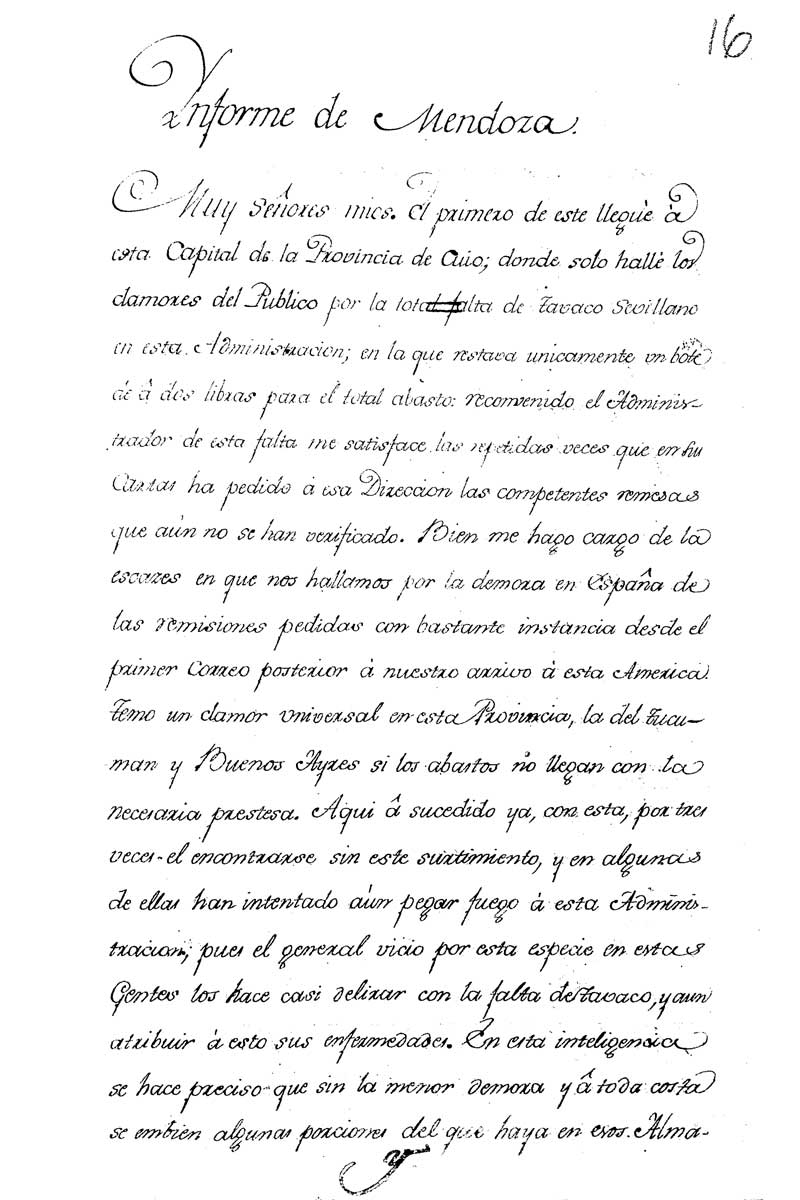 16
Ynforme de Mendoza.
Muy Señores mios. El primero de este lleguè à
esta Capital de la Provincia de Cuio; donde solo hallè los
clamores del Publico por la total falta de Tavaco Sevillano
en esta Administracion; en la que restava unicamente un bote
de â dos libras para el total abasto: reconvenido el Adminis-
trador de esta falta me satisface las repetidas veces que en su
Cartas ha pedido à esa Direccion las competentes remesas
que aún no se han verificado. Bien me hago cargo de la
escases en que nos hallamos por la demora en España de
las remisiones pedidas con bastante instancia desde el
primer Correo posterior à nuestro arrivo à esta America.
Temo un clamor universal en esta Provincia, la del Tucu-
man y Buenos Ayres si los abastos no llegan con la
necesaria prestesa. Aqui â sucedido ya, con esta, por tres
veces el encontrarse sin este surtimiento, y en algunas
de ellas han intentado aùn pegar fuego à esta Adminis-
tracion; pues el general vicio por esta especie en estas
Gentes los hace casi delirar con la falta de Tavaco, y aun
atribuir à esto sus enfermedades. En esta inteligencia
se hace preciso que sin la menor demora y â toda costa
se embien algunas porciones del que haya en esos Alma-